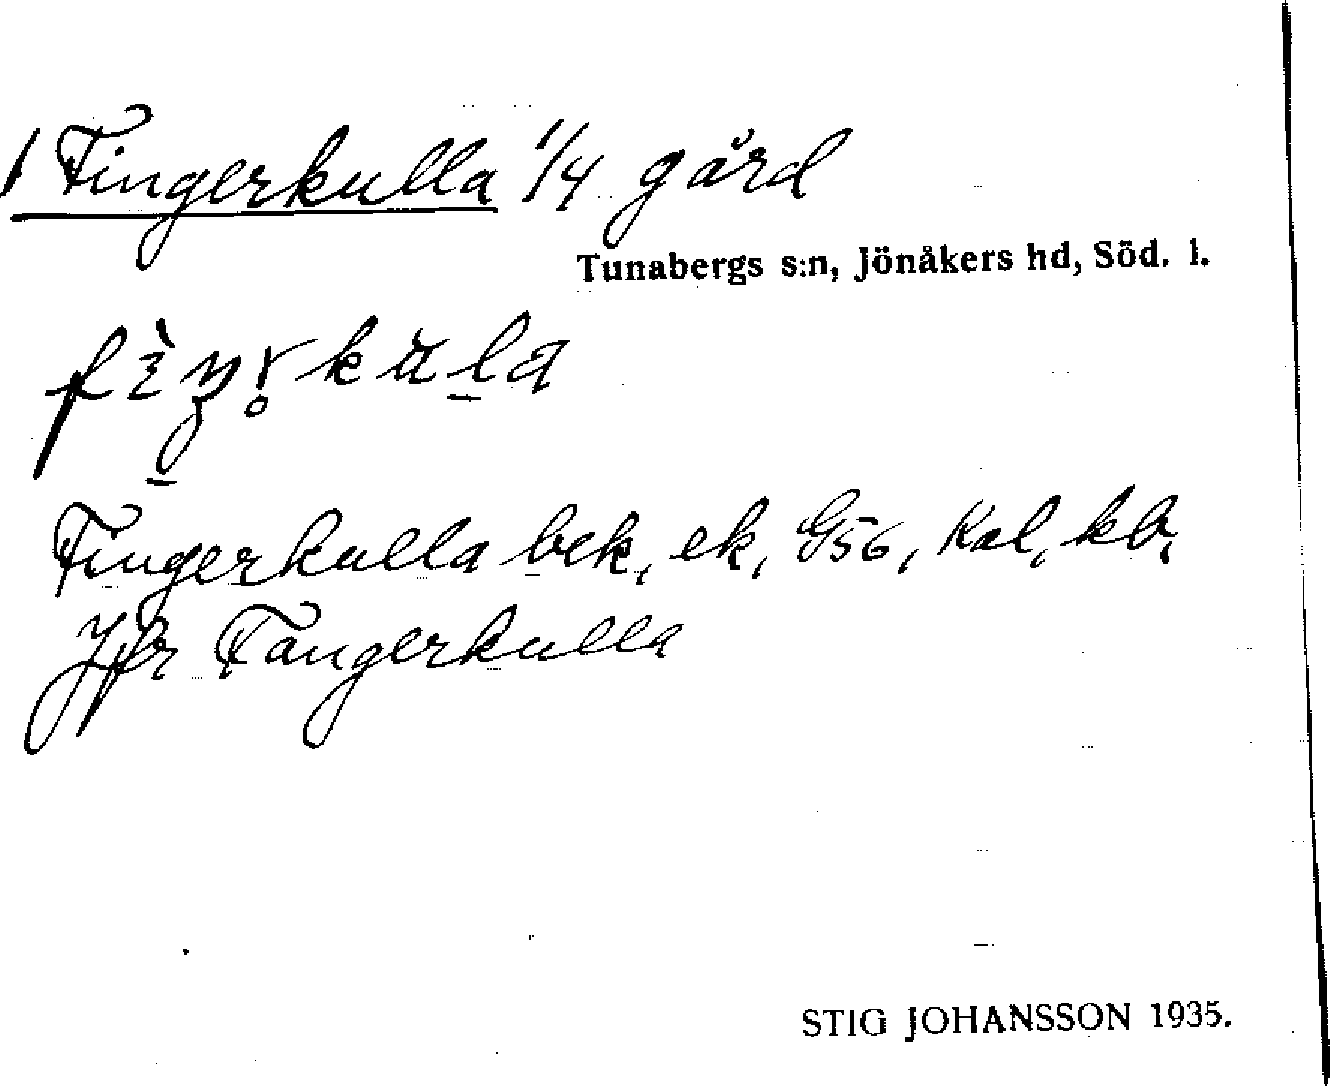 Fingerkulla 1/4 gård
Tunabergs s:n, Jönåkers hd, Söd. l.
Fingerkulla bek, ek, G56, Kal, kb,
Jfr Fangerkulla
STIG JOHANSSON 1935.